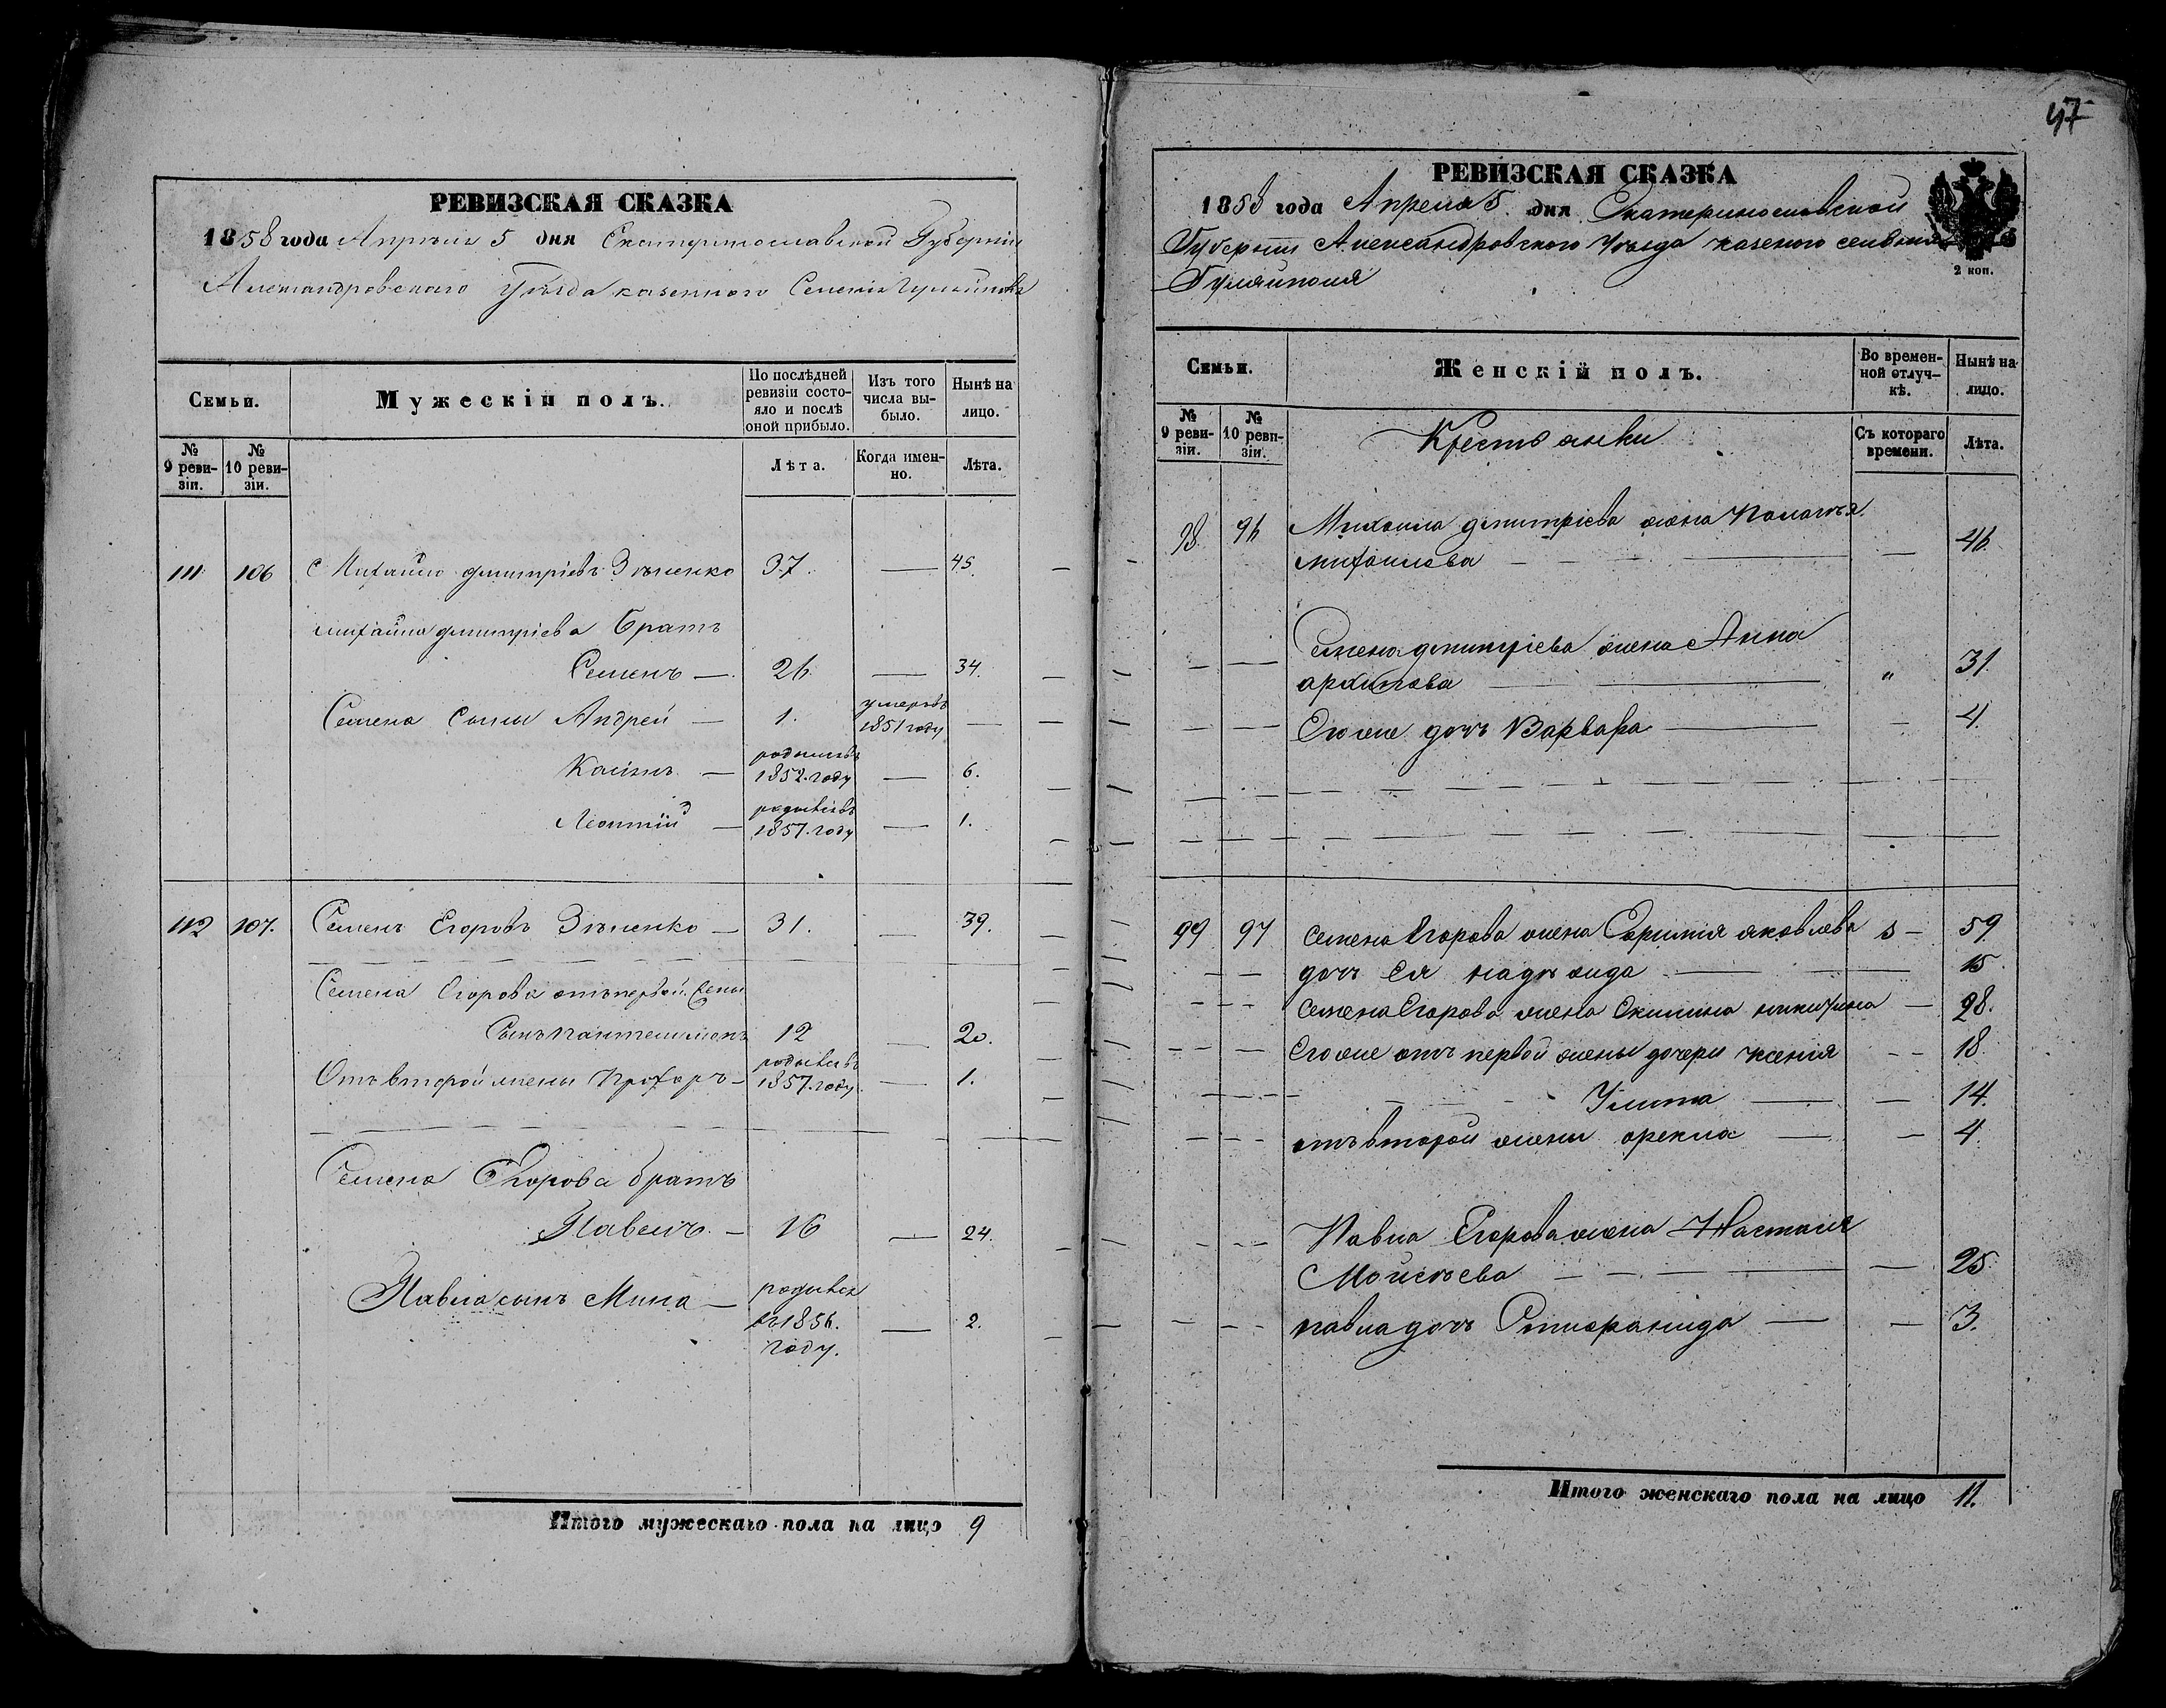 47
РЕВИЗСКАЯ СКАЗКА
1858 года Апреля 5 дня Екатеринославской Губернии
Александровского Уезда казенного Селенія Гуляйполя
Семьи.
Мужескій полъ.
По послѣдней ревизіи состояло и послѣ оной прибыло.
Изъ того числа выбыло.
Нынѣ на лицо.
№ 9 ревизіи.
№ 10 ревизіи.
Лѣта.
Когда именно.
Лѣта.
111 106 Михайло дмитріевъ Зѣленко 37. — 45.
михайла дмитріева братъ
Семенъ — 26 — 34.
Семена сыны Андрей — 1. умеръ въ 1851 году —
— родился въ 1852 году — 6.
Леонтій — родився въ 1857 году — 1.
112 107. Семенъ Егоровъ Зѣленко — 31. — 39.
Семена Егорова отъ первой жены
Сынъ пантелимонъ 12 — 20.
Отъ второй жены Прохоръ — родився въ 1857 году — 1.
Семена Егорова братъ
Павелъ — 16 — 24.
Павла сынъ Мина — родився въ 1856 году. — 2.
Итого мужескаго пола на лицо 9
РЕВИЗСКАЯ СКАЗКА
1858 года Апреля 5. дня Екатеринославской
Губерніи Александровского Уезда казеного селенія
Гуляйполя
2 коп.
Семьи.
Женскій полъ.
Во временной отлучкѣ.
Нынѣ на лицо.
№ 9 ревизіи.
№ 10 ревизіи.
Крестьянки
Съ котораго времени.
Лѣта.
98. 96 Михаила дмитріева жена Палагѣя
михаилова — 46
Семена дмитріева жена Анна
архипова — " 31.
Егоже дочь Варвара — 4.
99 97 Семена Егорова жена яковлева — 59.
дочь Ея — 15.
Семена Егорова жена Екилина никитина — 28.
Егоже отъ первой жены дочери ксенія — 18
Улита — 14.
отъ второй жены — 4.
Павла Егорова жена Настасія
Мойсѣева — 25.
павла дочь — 3.
Итого женскаго пола на лицо 11.